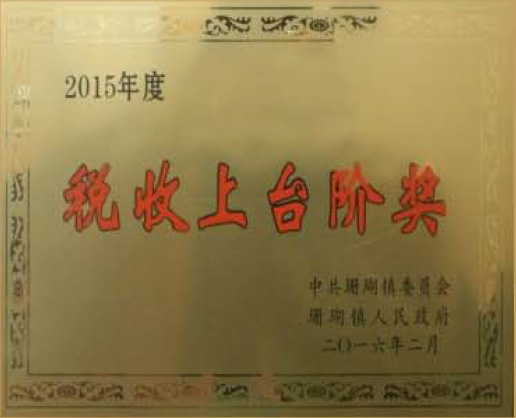 2015年度
税收上台阶奖
中共珊瑚镇委员会
珊瑚镇人民政府
二〇一六年二月